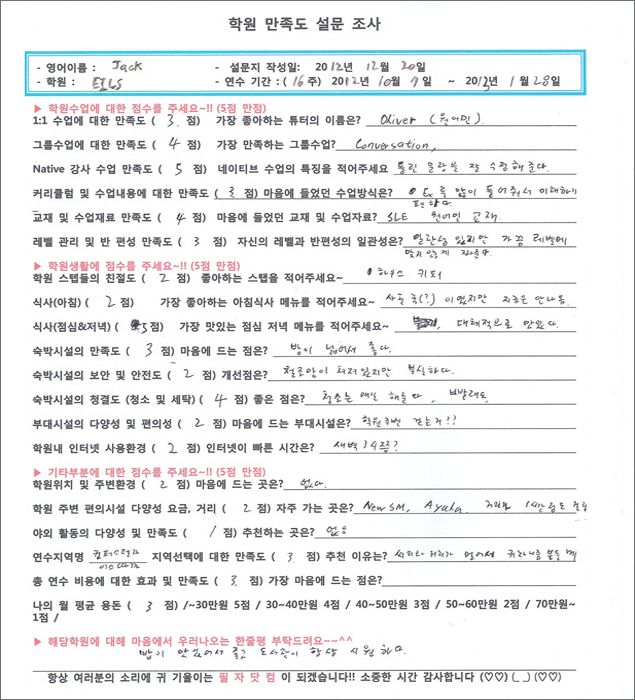 학원 만족도 설문 조사
- 영어이름 : Jack - 설문지 작성일: 2012년 12월 20일
- 학원 : EILS - 연수 기간 : ( 16 주) 2012년 10월 7일 ~ 2013년 1월 28일
▶ 학원수업에 대한 점수를 주세요~!! (5점 만점)
1:1 수업에 대한 만족도 ( 3. 점) 가장 좋아하는 튜터의 이름은? Oliver (원어민).
그룹수업에 대한 만족도 ( 4 점) 가장 만족하는 그룹수업? Conversation,
Native 강사 수업 만족도 ( 5 점) 네이티브 수업의 특징을 적어주세요 틀린 문장을 잘 수정해준다.
커리큘럼 및 수업내용에 대한 만족도 ( 3 점) 마음에 들었던 수업방식은? Ex를 많이 들어줘서 이해하기
편하다.
교재 및 수업재료 만족도 ( 4 점) 마음에 들었던 교재 및 수업자료? SLE 원어민 교재.
레벨 관리 및 반 편성 만족도 ( 3 점) 자신의 레벨과 반편성의 일관성은? 일관성 있지만 가끔 레벨에
맞지 않게
▶ 학원생활에 점수를 주세요~!! (5점 만점)
학원 스텝들의 친절도 ( 2 점) 좋아하는 스텝을 적어주세요~ 하우스 키퍼
식사(아침) ( 2 점) 가장 좋아하는 아침식사 메뉴를 적어주세요~ 국(?) 이었지만 지금은 안나옴.
식사(점심&저녁) ( 5점) 가장 맛있는 점심 저녁 메뉴를 적어주세요~ 대체적으로 맛있다.
숙박시설의 만족도 ( 3 점) 마음에 드는 점은? 방이 넓어서 좋다.
숙박시설의 보안 및 안전도 ( 2 점) 개선점은? 철조망이 쳐져있지만 부실하다.
숙박시설의 청결도 (청소 및 세탁) ( 4 점) 좋은 점은? 청소는 매일 해준다.
부대시설의 다양성 및 편의성 ( 2 점) 마음에 드는 부대시설은? 학원주변 걷는거!?
학원내 인터넷 사용환경 ( 2 점) 인터넷이 빠른 시간은? 새벽 3,4시쯤?
▶ 기타부분에 대한 점수를 주세요~!! (5점 만점)
학원위치 및 주변환경 ( 2 점) 마음에 드는 곳은? 없다.
학원 주변 편의시설 다양성 요금, 거리 ( 2 점) 자주 가는 곳은? New SM, Ayala. 거리는 1시간정도
야외 활동의 다양성 및 만족도 ( 1 점) 추천하는 곳은? 없음
연수지역명 지역선택에 대한 만족도 ( 3 점) 추천 이유는? 씨티와 거리가 멀어서
총 연수 비용에 대한 효과 및 만족도 ( 3 점) 가장 마음에 드는 점은?
나의 월 평균 용돈 ( 3 점) /~30만원 5점 / 30~40만원 4점 / 40~50만원 3점 / 50~60만원 2점 / 70만원~
1점 /
▶ 해당학원에 대해 마음에서 우러나오는 한줄평 부탁드려요~~^^
밥이 맛있어서 좋고 도서관이 항상 시원하다.
항상 여러분의 소리에 귀 기울이는 필자닷컴 이 되겠습니다!! 소중한 시간 감사합니다 (♡♡) (_ _) (♡♡)